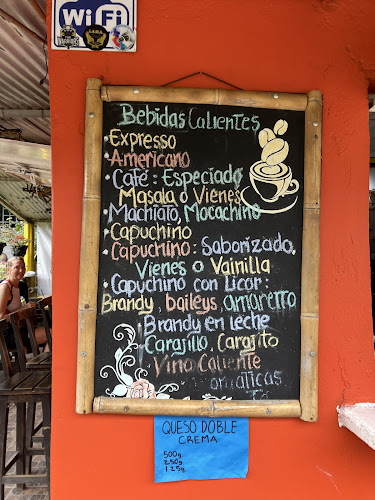 WiFi
Bebidas Calientes
• Expresso
• Americano
• Café: Especiado
Masala o Vienes
Machiato, Mocachino
• Capuchino
• Capuchino: Saborizado,
Vienes o Vainilla
• Capuchino con Licor:
Brandy, baileys, amaretto
Brandy en leche
Carajillo, Carajito
Vino Caliente
QUESO DOBLE
CREMA
500g
250g
125g